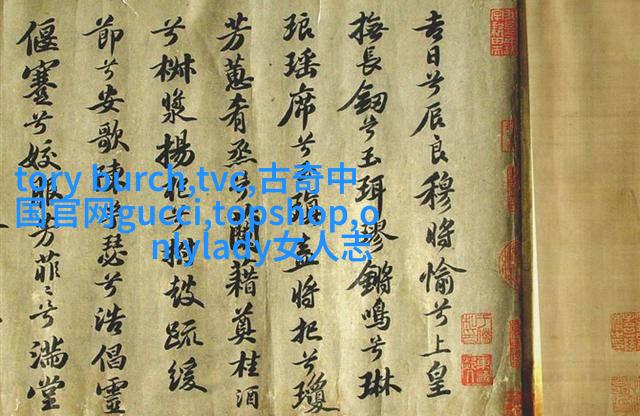 吉日兮辰良穆將愉兮上皇
撫長劔兮玉珥璆鏘鳴兮琳
琅瑤席兮瑱盍將把兮瓊
芳蕙肴烝兮蘭藉奠桂酒
兮椒漿揚枹兮拊鼓疏緩
節兮安歌陳竽瑟兮浩倡靈
偃蹇兮姣服芳菲〻兮滿堂
tory burch,tvc,古奇中
国官网gucci,topshop,o
nlylady女人志